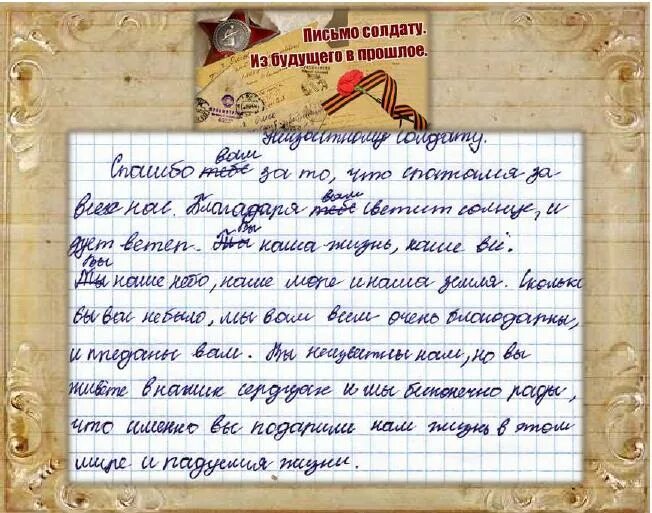 Письмо солдату.
Из будущего в прошлое.
Неизвестному солдату.
Спасибо тебе вам за то, что сражался за
всех нас. Благодаря тебе вам светит солнце, и
дует ветер. Ты Вы наша жизнь, наше всё.
Ты Вы наше небо, наше море и наша земля. Сколько
бы вас не было, мы вам всем очень благодарны,
и преданы вам. Вы неизвестны нам, но вы
живёте в наших сердцах и мы бесконечно рады,
что именно вы подарили нам жизнь в этом
мире и радуемся жизни.